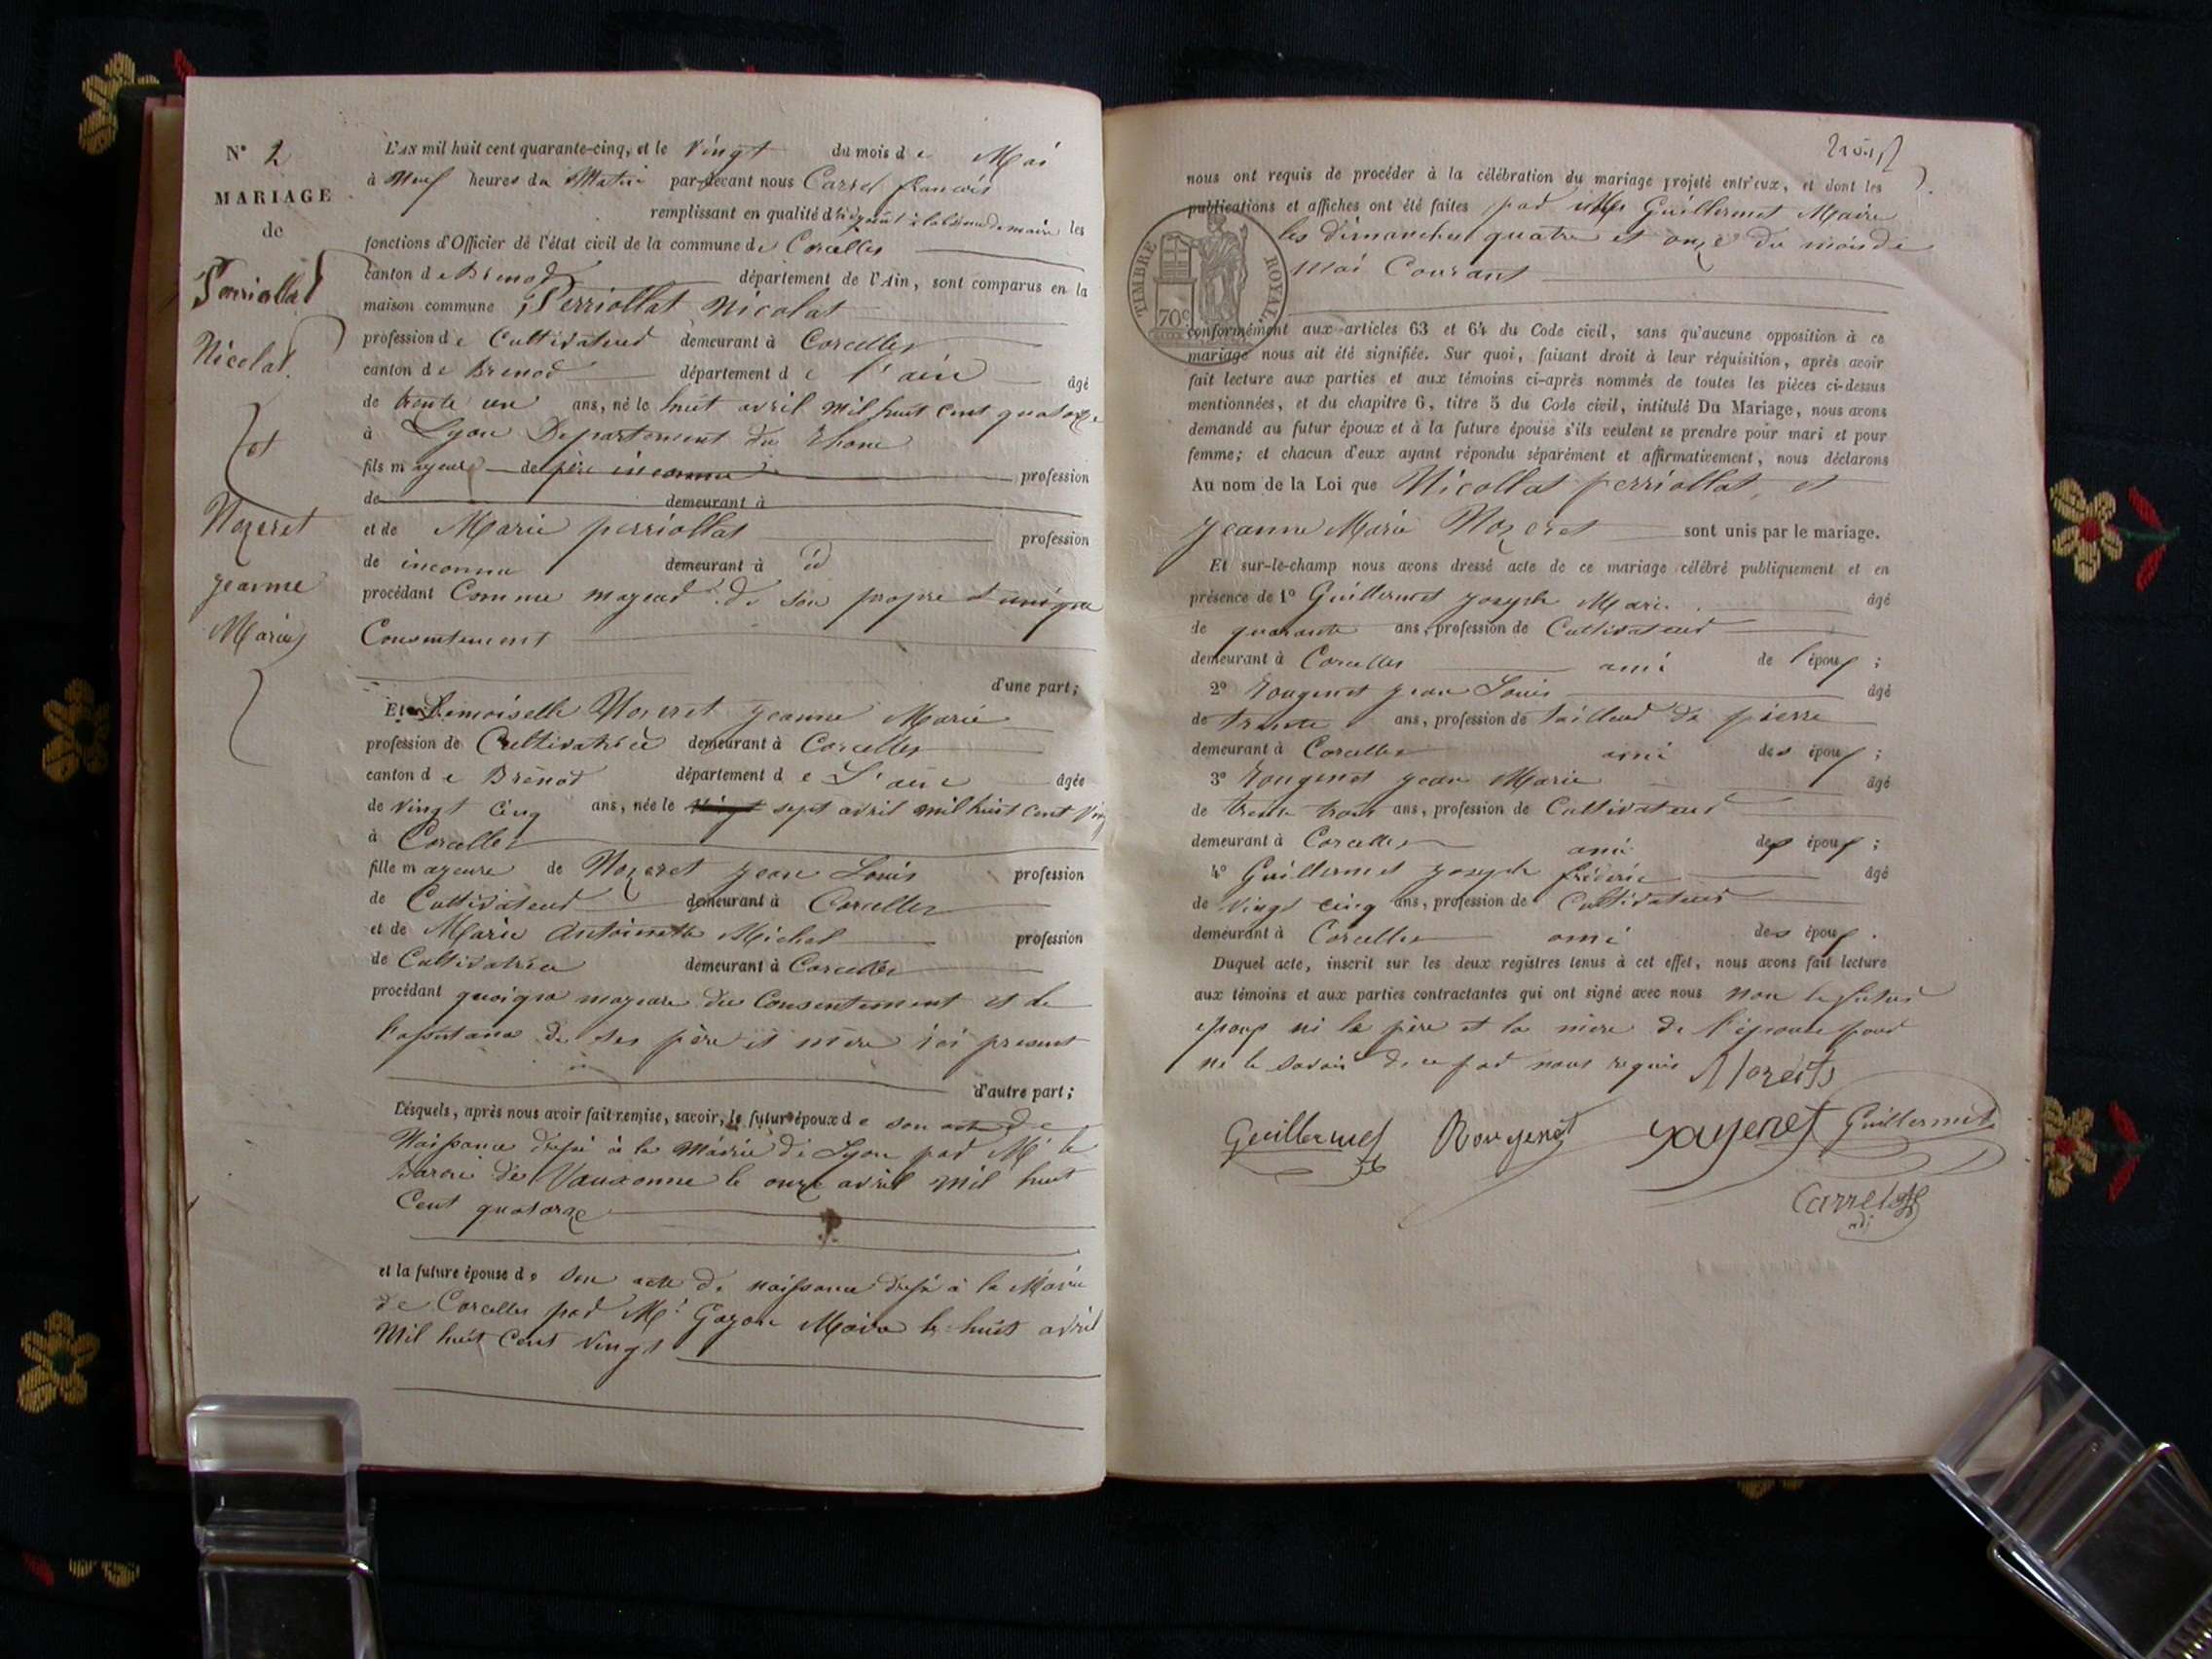 N° 2
MARIAGE
de
Perriollat
Nicolat
et
Nozeret
jeanne
Marie
L'AN mil huit cent quarante-cinq, et le vingt du mois de Mai
à Neuf heures du Matin par-devant nous Carrel françois
remplissant en qualité d'adjoint de maire les
fonctions d'Officier de l'état civil de la commune de Corcelles
canton de Brenod département de l'Ain, sont comparus en la
maison commune Perriollat Nicolat
profession de Cultivateur demeurant à Corcelles
canton de Brenod département de l'ain âgé
de trente un ans, né le huit avril mil huit cent quatorze
à Lyon Departement du Rhone
fils mayeur de père inconnu profession
de demeurant à
et de Marie perriollat profession
de inconnu demeurant à id
procédant Comme mayeur de son propre et unique
Consentement
d'une part;
Et Demoiselle Nozeret jeanne Marie
profession de Cultivatrice demeurant à Corcelles
canton de Brenod département de L'ain âgée
de vingt cinq ans, née le sept avril mil huit cent ving
à Corcelles
fille mayeure de Nozeret jean Louis profession
de Cultivateur demeurant à Corcelles
et de Marie Antoinette Michel profession
de Cultivatrice demeurant à Corcelles
procédant quoique mayeure du Consentement et de
l'assistance de ses père et mère ici present
d'autre part;
Lesquels, après nous avoir fait remise, savoir, le futur époux de son acte de
Naissance dressé à la Mairie de Lyon par Mr le
Baron de Vauxonne le onze avril mil huit
Cent quatorze
et la future épouse de son acte de naissance dressé à la Mairie
de Corcelles par Mr Goyon Maire le huit avril
Mil huit Cent vingt
nous ont requis de procéder à la célébration du mariage projeté entr'eux, et dont les
publications et affiches ont été faites par Guillermet Maire
les dimanches quatre et onze du mois de
mai Courant
TIMBRE ROYAL
70c
conformément aux articles 63 et 64 du Code civil, sans qu'aucune opposition à ce
mariage nous ait été signifiée. Sur quoi, faisant droit à leur réquisition, après avoir
fait lecture aux parties et aux témoins ci-après nommés de toutes les pièces ci-dessus
mentionnées, et du chapitre 6, titre 5 du Code civil, intitulé Du Mariage, nous avons
demandé au futur époux et à la future épouse s'ils veulent se prendre pour mari et pour
femme; et chacun d'eux ayant répondu séparément et affirmativement, nous déclarons
Au nom de la Loi que Nicollat perriollat, et
jeanne Marie Nozeret sont unis par le mariage.
Et sur-le-champ nous avons dressé acte de ce mariage célébré publiquement et en
présence de 1° Guillermet joseph Marie âgé
de quarante ans, profession de Cultivateur
demeurant à Corcelles ami de l'époux;
2° Rougenet jean Louis âgé
de trente ans, profession de tailleur de pierre
demeurant à Corcelles ami des époux;
3° Rougenet jean Marie âgé
de trente trois ans, profession de Cultivateur
demeurant à Corcelles ami des époux;
4° Guillermet joseph fréderic âgé
de vingt cinq ans, profession de Cultivateur
demeurant à Corcelles ami des époux.
Duquel acte, inscrit sur les deux registres tenus à cet effet, nous avons fait lecture
aux témoins et aux parties contractantes qui ont signé avec nous non le futur
epoux ni le père et la mère de l'épouse pour
ne le savoir de ce par nous requis Nozeret
Guillermet Rougenet Guillermet
Carrel
adj